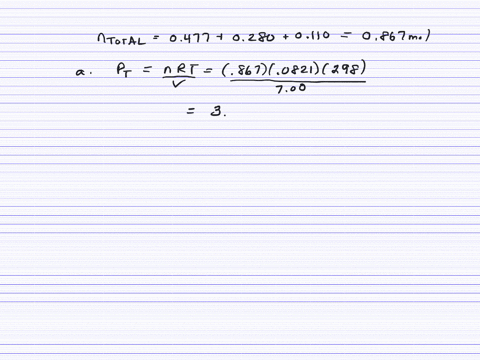 nTOTAL = 0.477 + 0.280 + 0.110 = 0.867 mol
a. PT = nRT/V = (.867)(.0821)(298)/7.00
= 3.